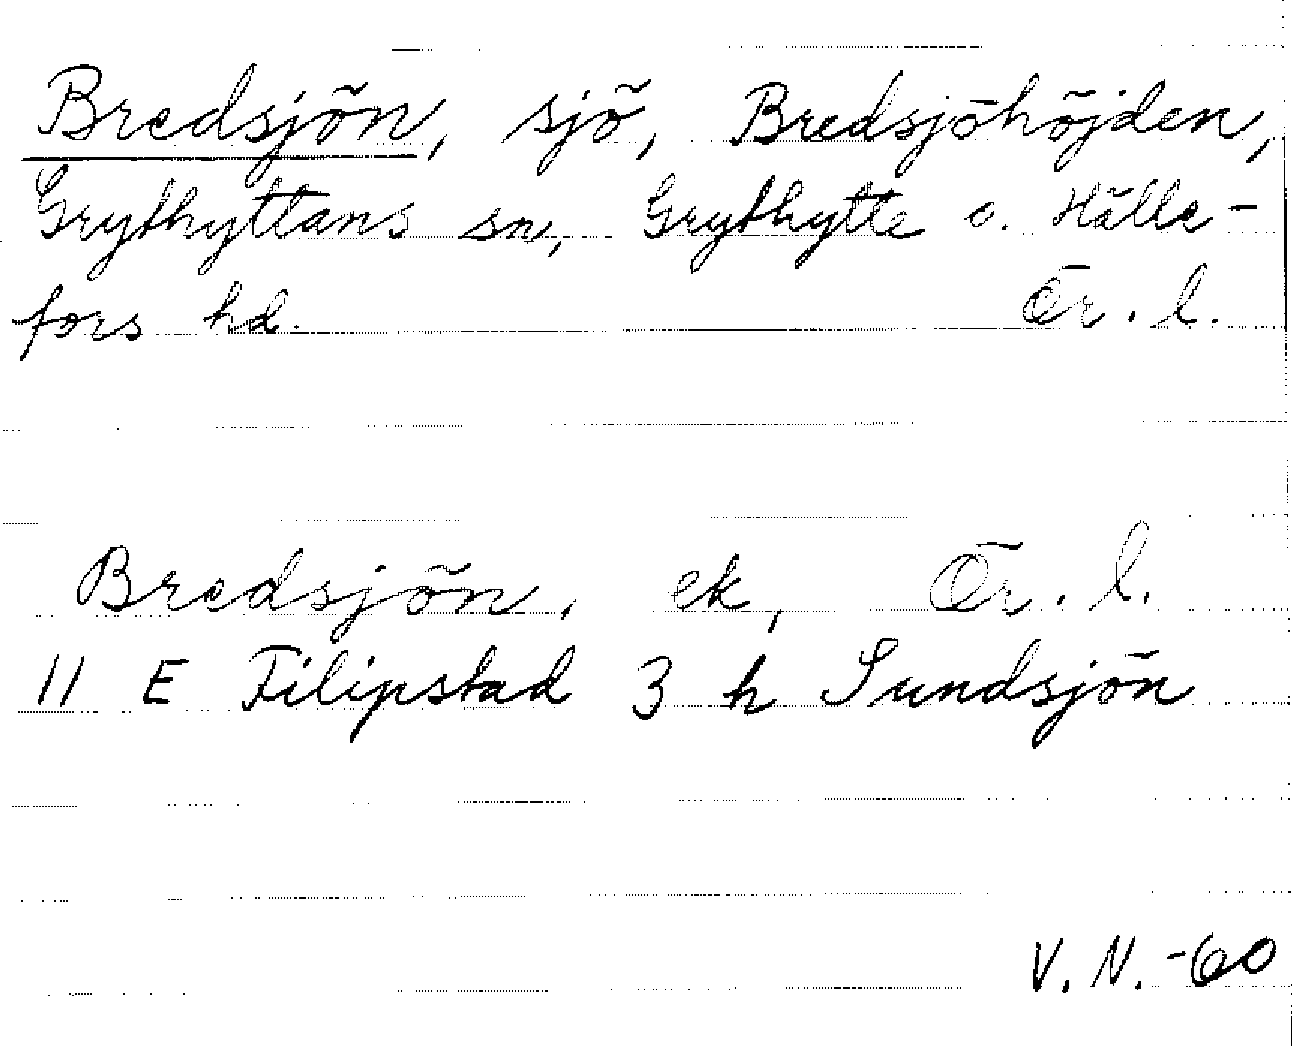 Bredsjön, sjö, Bredsjöhöjden,
Grythyttans sn, Grythytte o. Hälle-
fors hd. Ör. l.
Bredsjön, ek, Ör. l.
11 E Filipstad 3 h Sundsjön
V. N. -60